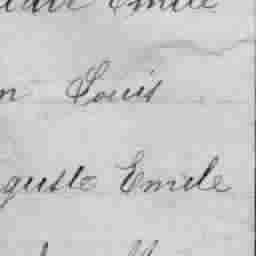 Emile
n Louis
guste Emile